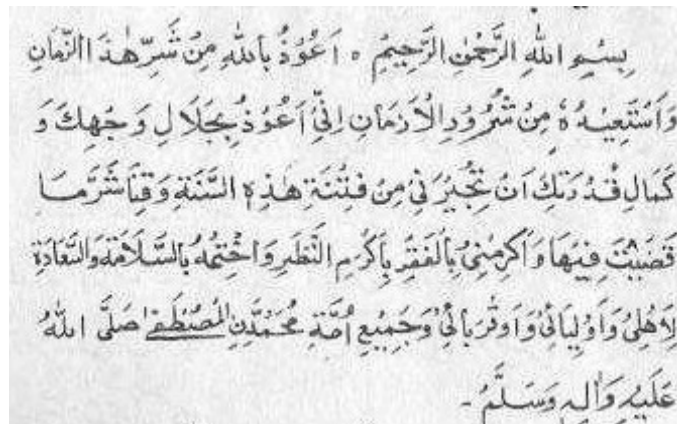 بِسْمِ اللهِ الرَّحْمٰنِ الرَّحِيْمِ ۰ اَعُوْذُ بِاللهِ مِنْ شَرِّ هٰذَا الزَّمَانِ
وَاَسْتَعِيْذُهٗ مِنْ شُرُوْرِ الْاَزْمَانِ اِنِّيْ اَعُوْذُ بِجَلَالِ وَجْهِكَ وَ
كَمَالِ قُدْرَتِكَ اَنْ تُجِيْرَنِيْ مِنْ فِتْنَةِ هٰذِهِ السَّنَةِ وَقِنَا شَرَّمَا
قَضَيْتَ فِيْهَا وَاَكْرِمْنِيْ بِالْفَقْرِ بِاَكْرَمِ النَّظَرِ وَاخْتِمْهُ بِالسَّلَامَةِ وَالسَّعَادَةِ
لِاَهْلِيْ وَاَوْلِيَائِيْ وَاَوقْرَبَائِيْ وَجَمِيْعِ اُمَّةِ مُحَمَّدِنِ الْمُصْطَفٰے صَلَّى اللهُ
عَلَيْهِ وَاٰلِهٖ وَسَلَّمَ ۔